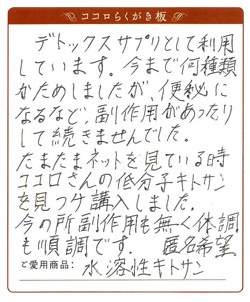 ココロらくがき板
デトックスサプリとして利用
しています。今まで何種類
かためしましたが、便秘に
なるなど、副作用があったり
して続きませんでした。
たまたまネットを見ている時
ココロさんの低分子キトサン
を見つけ購入しました。
今の所副作用も無く体調
も順調です。 匿名希望
ご愛用商品: 水溶性キトサン